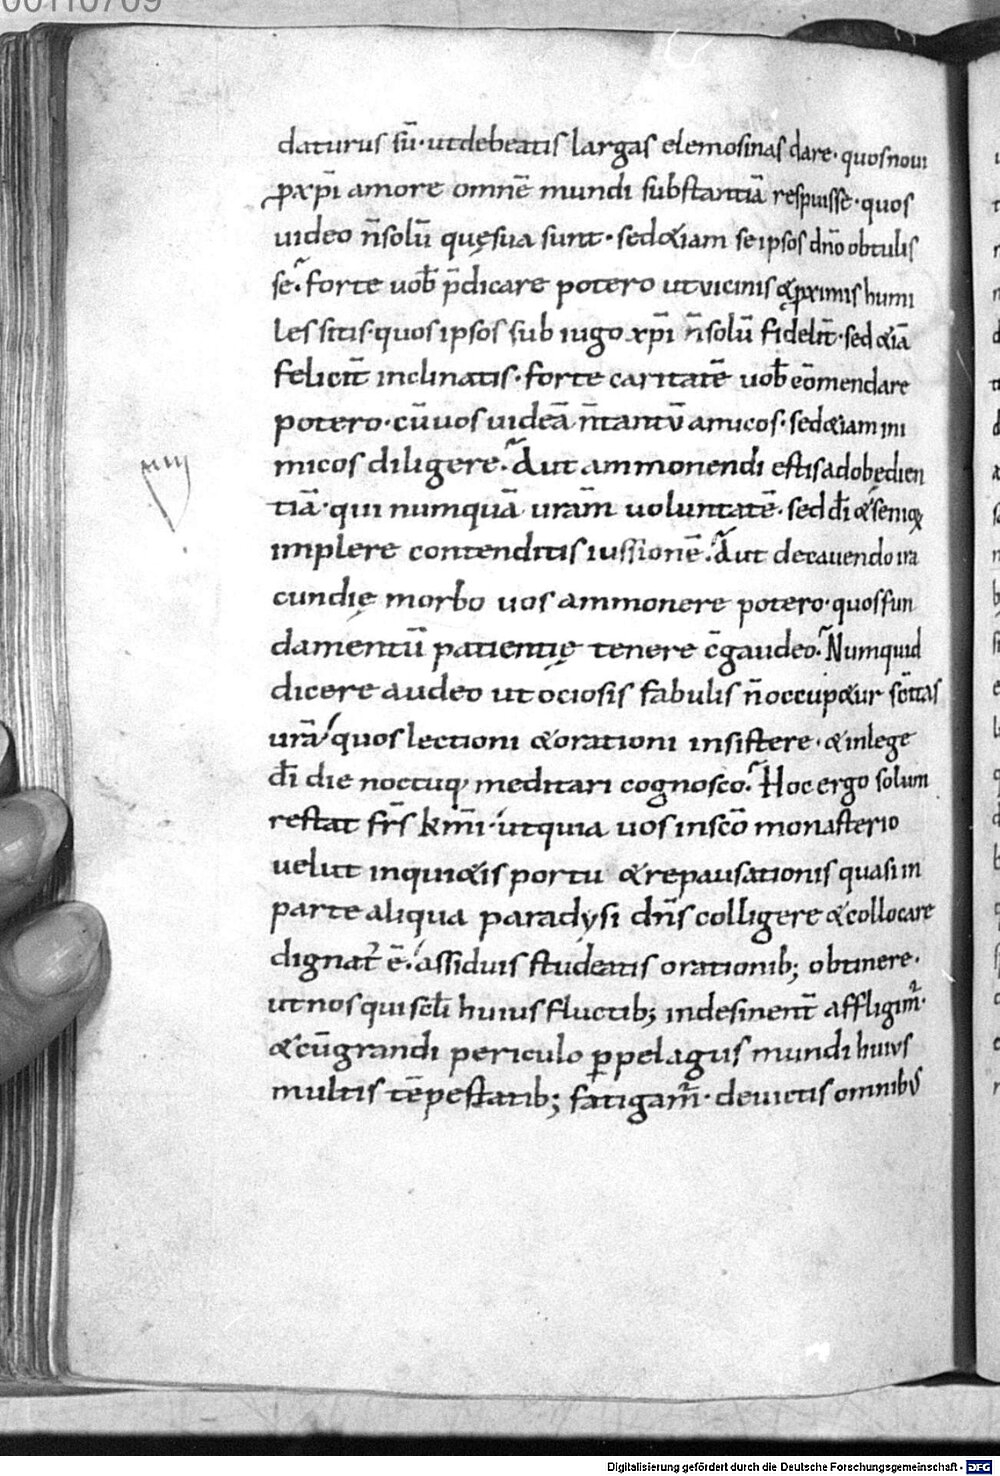 00110709
daturus sū· ut debeatis largas elemosinas dare· quos noui
p xp̄i amore omnē mundi substantiā respuisse· quos
uideo n̄ solū quę sua sunt· sed & iam se ipsos dn̄o obtulis
se· forte uob̄ p̄dicare potero ut uicinis & pximis humi
les sitis· quos ipsos sub iugo xp̄i n̄ solū fidelit̄· sed & iā
felicit̄ inclinatis· forte caritatē uob̄ cōmendare
potero· cū uos uideā n̄ tantū amicos· sed & iam ini
micos diligere· Aut ammonendi estis ad obędien
tiā· qui numquā urām uoluntatē· sed dī & senioꝝ
implere contenditis iussionē· Aut de cauendo ira
cundię morbo uos ammonere potero· quos fun
damentū patientię tenere c̄gaudeo· Numquid
dicere audeo ut ociosis fabulis n̄ occup&ur sc̄itas
urā· quos lectioni & orationi insistere· & in lege
dī die noctuq; meditari cognosco· Hoc ergo solum
restat frs̄ km̄i· ut quia uos in sc̄o monasterio
uelut in qui&is portu & repausationis quasi in
parte aliqua paradysi dn̄s colligere & collocare
dignat' ē· assiduis studeatis orationib; obtinere·
ut nos qui sc̄li huius fluctib; indesinent̄ affligim'·
& cū grandi periculo ꝑ pelagus mundi huius
multis tēpestatib; fatigam'· deuictis omnibus
Digitalisierung gefördert durch die Deutsche Forschungsgemeinschaft - DFG